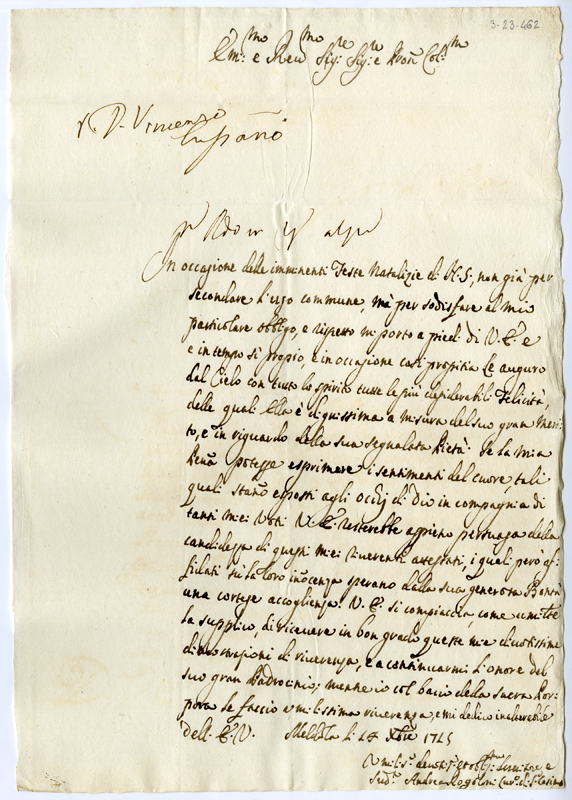 3-23-462
Em:mo e Reu:mo Sig:re Sig:re e Pron Col:mo
D. Vincenzo
In occasione delle imminenti Feste Natalizie di N.S:, non già per
secondare l'uso commune, mà per sodisfare al mio
particolare obbligo, e rispetto mi porto a piedi di V. E.a e
e in tempo sì propio, e in occasione così propitia Le auguro
dal Cielo con tutto lo spirito tutte le più desiderabili Felicità,
delle quali Ella è dignissima a misura del suo gran Meri:
to, e in riguardo della sua segnalata Pietà. Se la mia
Pena potesse esprimere i sentimenti del cuore, tali
quali stano esposti agli occhj di Dio in compagnia di
tanti miei Voti V. E. resterebbe appieno persuasa della
candidezza di questi miei riverenti attestati, i quali però af:
fidati sù la loro inocenza sperano dalla sua generosa Bontà
una cortese accoglienza. V. E. si compiaccia, come umilte
la supplico, di ricevere in bon grado queste mie divotissime
dimostrazioni di riverenza, e a continuarmi l'onore del
suo gran Padrocinio; mentre io col bacio della Sacra Por:
pora le faccio umilissima riverenza, e mi dedico
dell' E. V. Meldola li 14 Xbre 1715
Umil:mo deuot:mo et obblig:mo Seruitore e
Sud:o Andrea